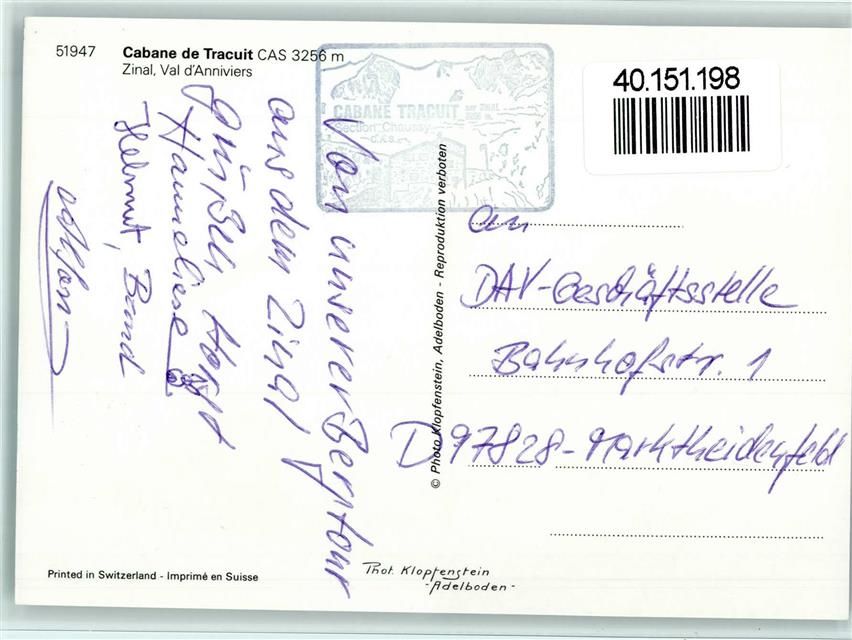 51947 Cabane de Tracuit CAS 3256 m
Zinal, Val d'Anniviers
CABANE TRACUIT
Section Chaussy
40.151.198
Von unserer Bergtour
aus dem Zinal
Grüßen Horst
Hanneliese
Helmut, Bernd
an
DAV-Geschäftsstelle
Bahnhofstr. 1
D 97828-Marktheidenfeld
© Photo Klopfenstein, Adelboden - Reproduktion verboten
Printed in Switzerland - Imprimé en Suisse
Phot. Klopfenstein
- Adelboden -